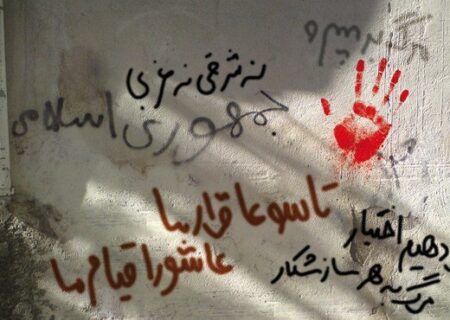 مرگ بر
نه شرقی نه غربی
جمهوری اسلامی
تاسوعا قرار ما
عاشورا قیام ما
دهیم اختیار
مرگ به هر سازشکار